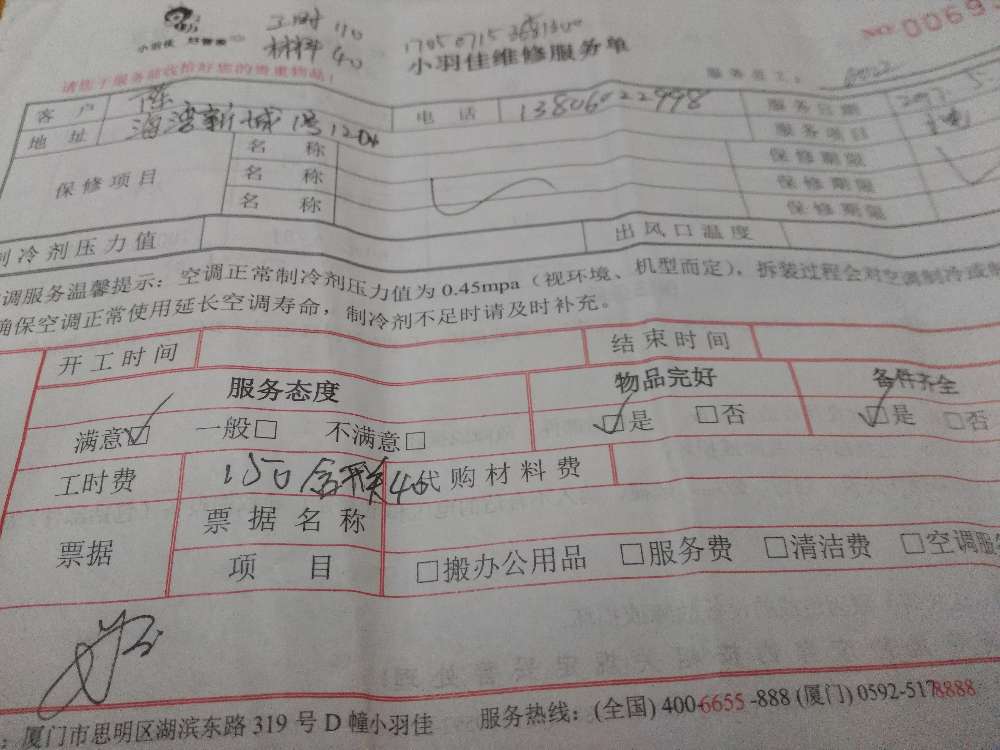 工时 110
材料 40
1705 0715 3681300
小羽佳
小羽佳维修服务单
NO: 0069
请您于服务前收拾好您的贵重物品！
服务员工：
客 户 陈 电 话 13806022998 服务日期
地 址 海湾新城1号1204 服务项目
保修项目 名 称 保修期限
名 称 保修期限
名 称 保修期限
制冷剂压力值 出风口温度
调服务温馨提示：空调正常制冷剂压力值为 0.45mpa（视环境、机型而定），拆装过程会对空调制冷或制
确保空调正常使用延长空调寿命，制冷剂不足时请及时补充。
开工时间 结束时间
服务态度 物品完好 备件齐全
满意☑ 一般□ 不满意□ ☑是 □否 ☑是 □否
工时费 150含 40 代购材料费
票据 票据名称
项 目 □搬办公用品 □服务费 □清洁费 □空调服务
：厦门市思明区湖滨东路 319 号 D 幢小羽佳 服务热线：(全国) 400-6655-888 (厦门) 0592-5178888